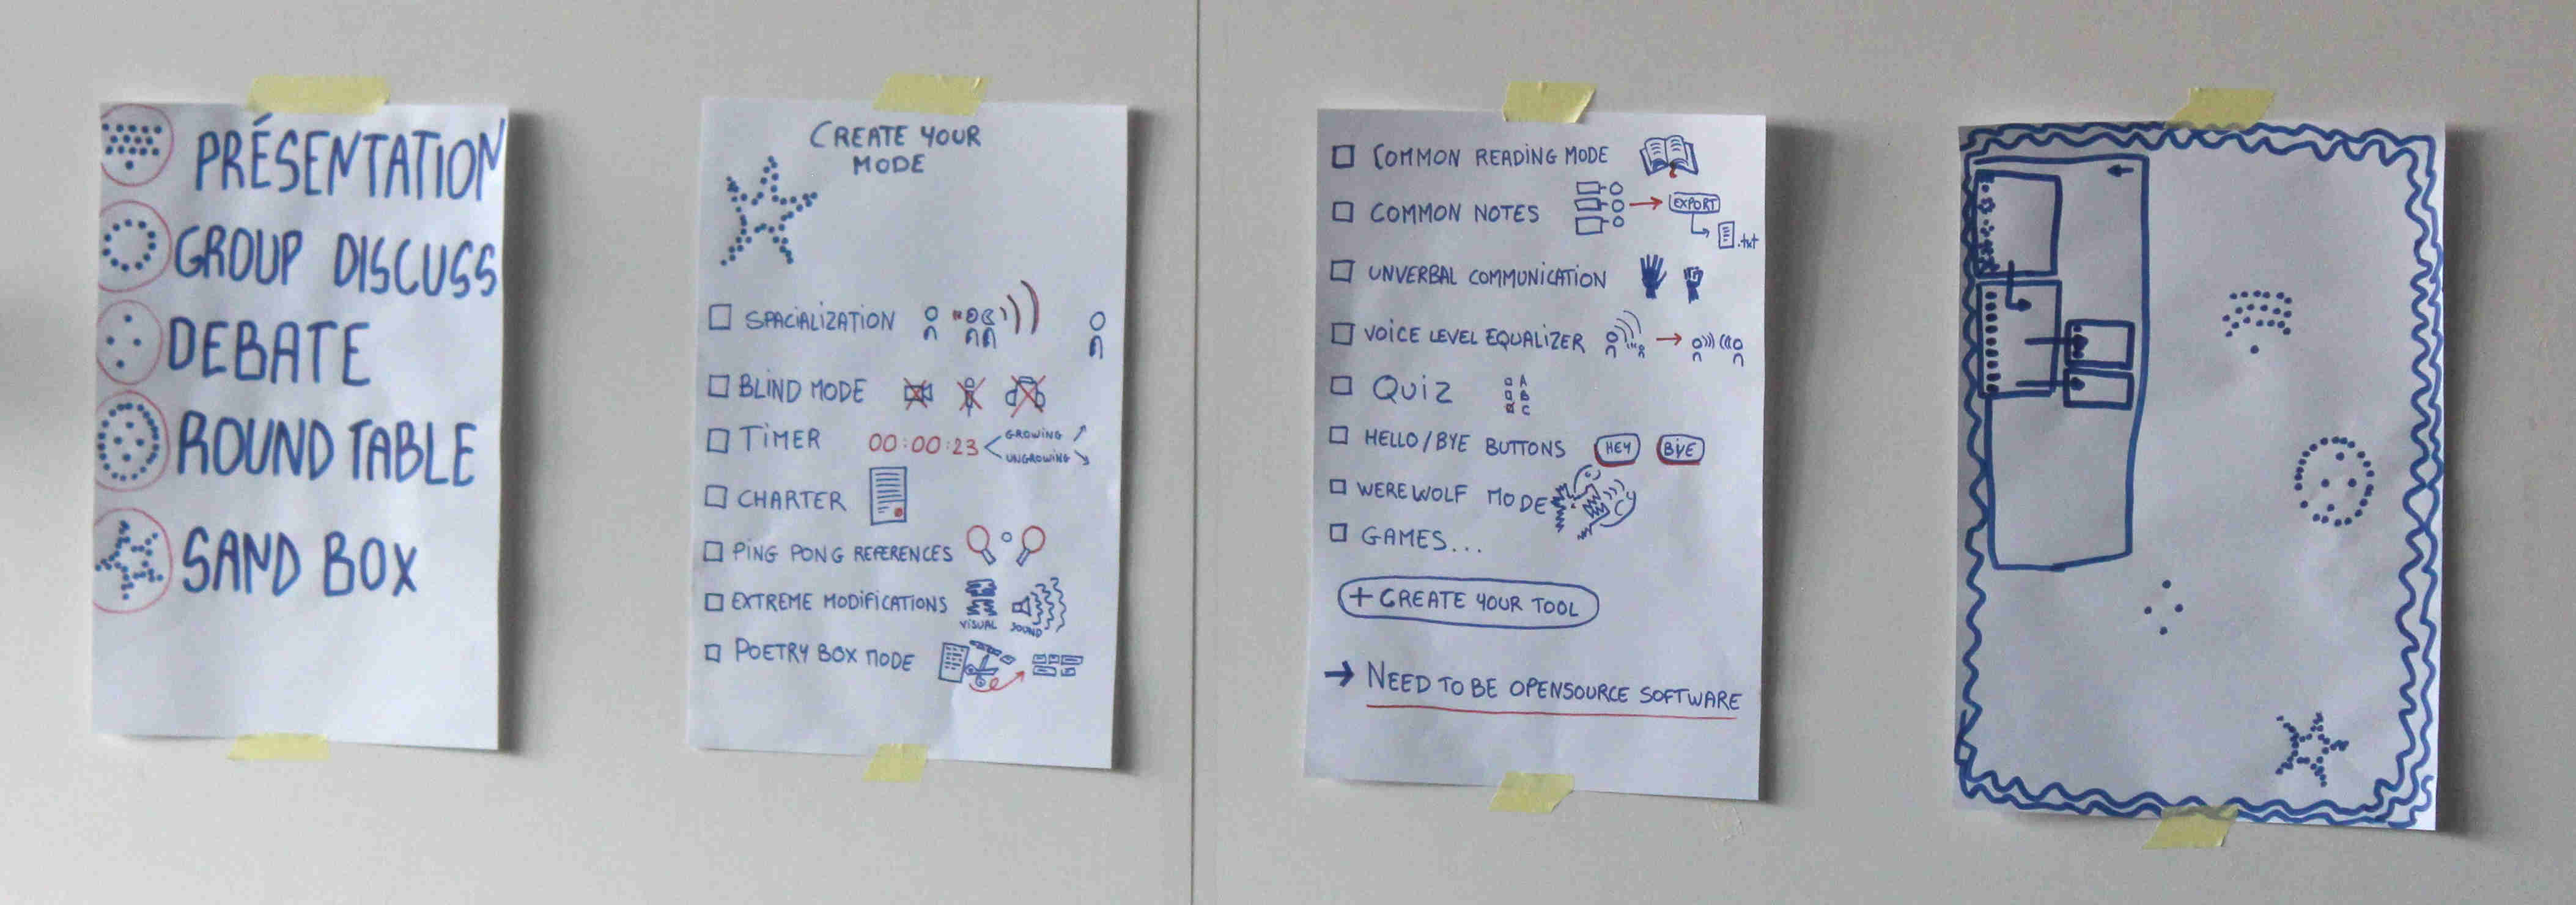 PRÉSENTATION
GROUP DISCUSS
DEBATE
ROUND TABLE
SAND BOX
CREATE YOUR
MODE
SPACIALIZATION
BLIND MODE
TIMER 00:00:23 GROWING
UNGROWING
CHARTER
PING PONG REFERENCES
EXTREME MODIFICATIONS
VISUAL SOUND
POETRY BOX MODE
COMMON READING MODE
COMMON NOTES EXPORT
.txt
UNVERBAL COMMUNICATION
VOICE LEVEL EQUALIZER
QUIZ A
B
C
HELLO/BYE BUTTONS HEY BYE
WEREWOLF MODE
GAMES...
+ CREATE YOUR TOOL
→ NEED TO BE OPENSOURCE SOFTWARE